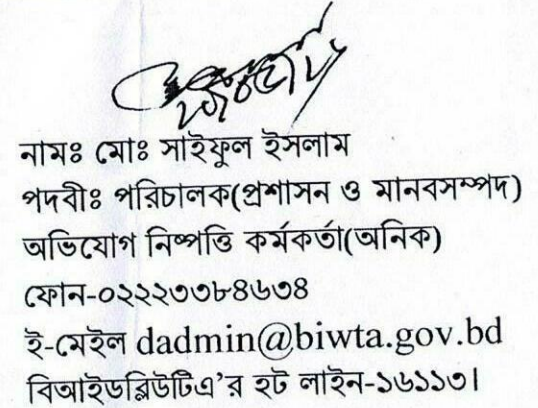 নামঃ মোঃ সাইফুল ইসলাম
পদবীঃ পরিচালক(প্রশাসন ও মানবসম্পদ)
অভিযোগ নিষ্পত্তি কর্মকর্তা(অনিক)
ফোন-০২২২৩৩৮৪৬৩৪
ই-মেইল dadmin@biwta.gov.bd
বিআইডব্লিউটিএ'র হট লাইন-১৬১১৩।